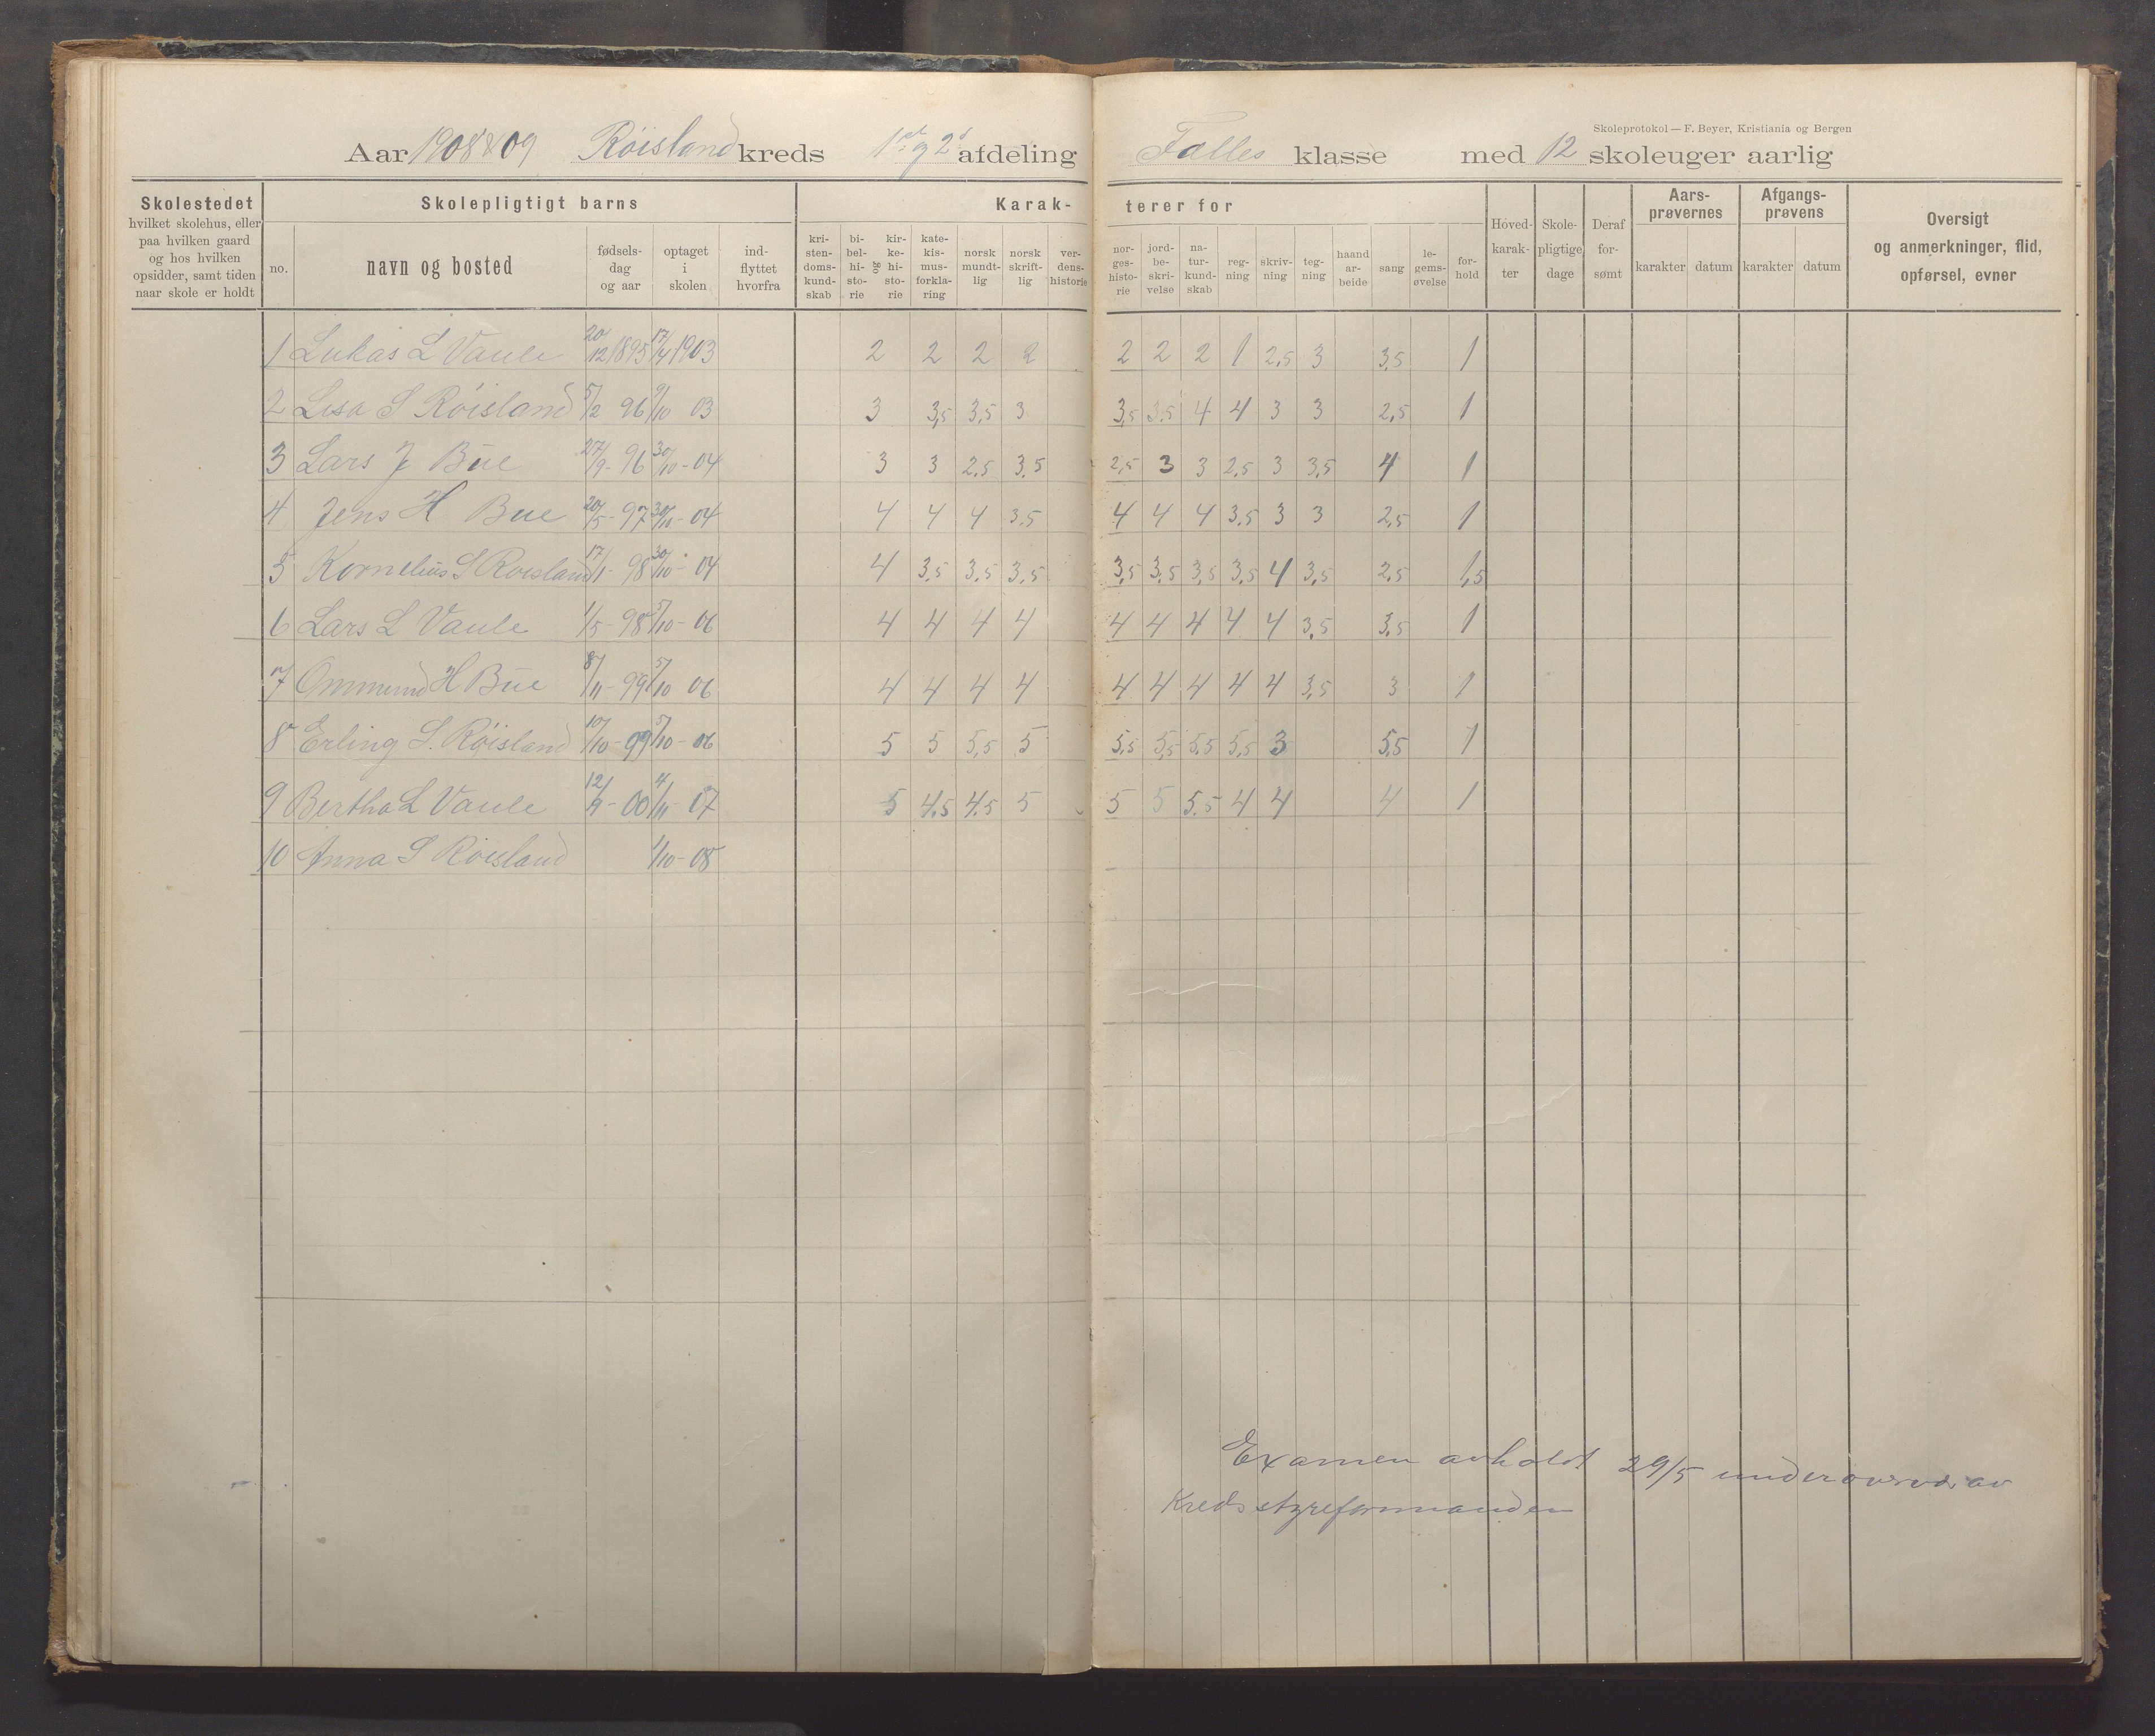 Skoleprotokol — F. Beyer, Kristiania og Bergen
Aar 1908 & 09 Røisland kreds 1ste og 2d afdeling Fælles klasse med 12 skoleuger aarlig
Skolestedet hvilket skolehus, eller paa hvilken gaard og hos hvilken opsidder, samt tiden naar skole er holdt
Skolepligtigt barns
no. navn og bosted fødsels-dag og aar optaget i skolen ind-flyttet hvorfra
Karak-terer for
kri-sten-doms-kund-skab bi-bel-hi-sto-rie og kir-ke-hi-sto-rie kate-kis-mus-forkla-ring norsk mundt-lig norsk skrift-lig ver-dens-historie
nor-ges-histo-rie jord-be-skri-velse na-tur-kund-skab reg-ning skriv-ning teg-ning haand ar-beide sang le-gems-øvelse for-hold
Hoved-karak-ter Skole-pligtige dage Deraf for-sømt
Aars-prøvernes karakter datum
Afgangs-prøvens karakter datum
Oversigt og anmerkninger, flid, opførsel, evner
1 Lukas L Vaule 20/12 1895 17/4 1903 2 2 2 2 2 2 2 1 2,5 3 3,5 1
2 Lisa S Røisland 5/2 96 9/10 03 3 3,5 3,5 3 3,5 3,5 4 4 3 3 2,5 1
3 Lars J Bue 27/9 - 96 30/10 - 04 3 3 2,5 3,5 2,5 3 3 2,5 3 3,5 4 1
4 Jens H Bue 20/5 - 97 30/10 - 04 4 4 4 3,5 4 4 4 3,5 3 3 2,5 1
5 Kornelius S Røisland 17/1 - 98 30/10 - 04 4 3,5 3,5 3,5 3,5 3,5 3,5 3,5 4 3,5 2,5 1,5
6 Lars L Vaule 1/5 - 98 5/10 - 06 4 4 4 4 4 4 4 4 4 3,5 3,5 1
7 Ommund H Bue 8/11 - 99 5/10 06 4 4 4 4 4 4 4 4 4 3,5 3 1
8 Erling S. Røisland 10/10 - 99 5/10 - 06 5 5 5,5 5 5,5 5,5 5,5 5,5 3 5,5 1
9 Bertha L Vaule 12/9 - 00 4/11 - 07 5 4,5 4,5 5 5 5 5,5 4 4 4 1
10 Anna S Røisland 1/10 - 08
Examen avholdt 29/5 under overvær av
Kredsstyreformanden